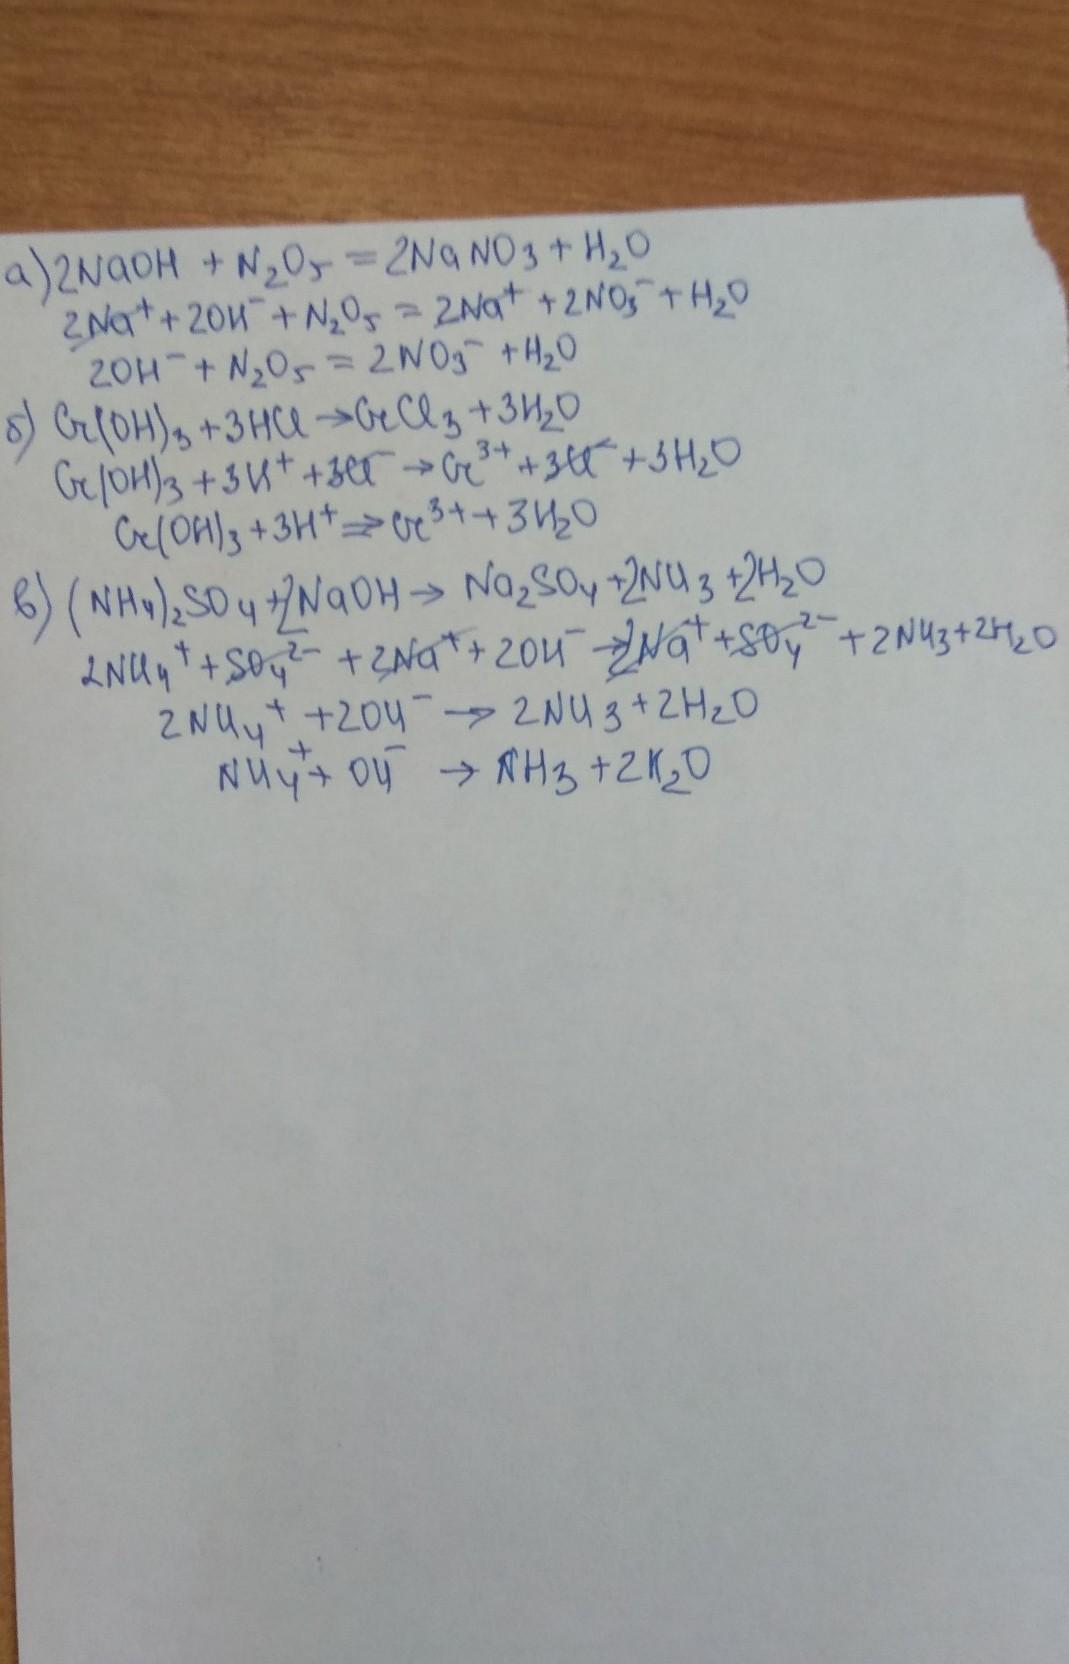 а) 2NaOH + N₂O₅ = 2NaNO₃ + H₂O
2Na⁺ + 2OH⁻ + N₂O₅ = 2Na⁺ + 2NO₃⁻ + H₂O
2OH⁻ + N₂O₅ = 2NO₃⁻ + H₂O
б) Cr(OH)₃ + 3HCl → CrCl₃ + 3H₂O
Cr(OH)₃ + 3H⁺ + 3Cl⁻ → Cr³⁺ + 3Cl⁻ + 3H₂O
Cr(OH)₃ + 3H⁺ → Cr³⁺ + 3H₂O
в) (NH₄)₂SO₄ + 2NaOH → Na₂SO₄ + 2NH₃ + 2H₂O
2NH₄⁺ + SO₄²⁻ + 2Na⁺ + 2OH⁻ → 2Na⁺ + SO₄²⁻ + 2NH₃ + 2H₂O
2NH₄⁺ + 2OH⁻ → 2NH₃ + 2H₂O
NH₄⁺ + OH⁻ → NH₃ + 2H₂O